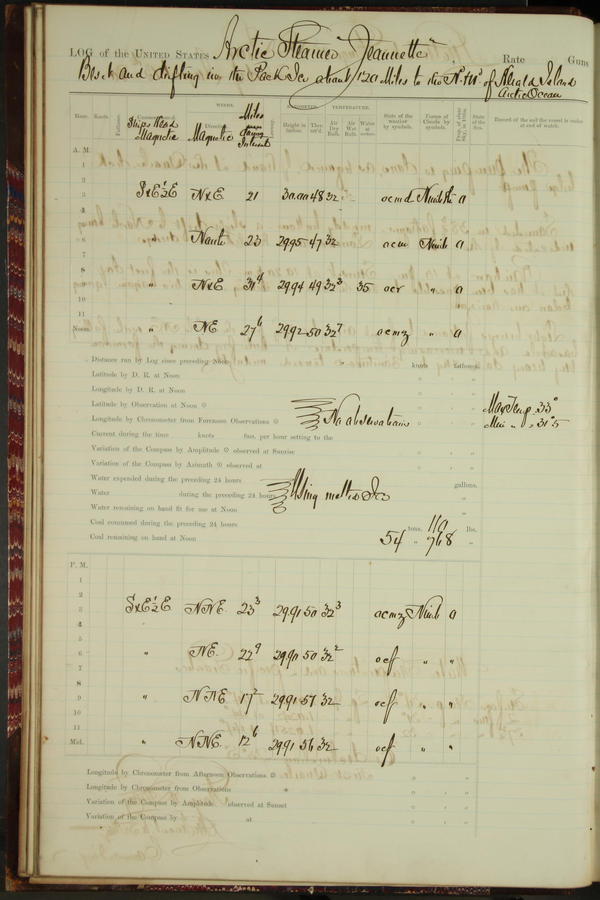 LOG of the UNITED STATES Arctic Steamer "Jeannette" Rate Guns
Beset and drifting in the Pack Ice about 120 Miles to the N & W of Herald Island
Arctic Ocean
Hour. Knots. Ships Head Magnetic WINDS. Direction Magnetic Miles during Interval Height in inches. Ther. att'd. TEMPERATURE. Air Dry Bulb. Air Wet Bulb. Water at surface. State of the weather by symbols. Forms of Clouds by symbols. State of the Sea. Record of the sail the vessel is under at end of watch.
A. M.
1
2
3 SxE½E NxE 21 30.00 48 32 ocmd Nimb a
4
5
6 " 23 29.95 47 32 ocm Nimb a
7
8
9 " NxE 31⁴ 29.94 49 32³ 35 ocr " a
10
11
Noon. " NE 27⁶ 29.92 50 32⁷ ocmz " a
Distance run by Log since preceding Noon knots fathoms.
Latitude by D. R. at Noon
Longitude by D. R. at Noon
Latitude by Observation at Noon Max Temp 33°
Longitude by Chronometer from Forenoon Observations No observations Min " 31°5
Current during the time knots fms. per hour setting to the
Variation of the Compass by Amplitude observed at Sunrise
Variation of the Compass by Azimuth observed at
Water expended during the preceding 24 hours gallons.
Water during the preceding 24 hours Using melted Ice "
Water remaining on hand fit for use at Noon "
Coal consumed during the preceding 24 hours tons. 110 lbs.
Coal remaining on hand at Noon 54 " 768 "
P. M.
1
2
3 SxE½E NNE. 23³ 29.91 50 32³ ocmz Nimb a
4
5
6 " NE. 22⁹ 29.90 50 32² ocf " "
7
8
9 " NNE 17² 29.91 57 32 ocf " "
10
11
Mid. " NNE. 12⁶ 29.91 56 32 ocf " "
Longitude by Chronometer from Afternoon Observations
Longitude by Chronometer from Observations
Variation of the Compass by Amplitude observed at Sunset
Variation of the Compass by at